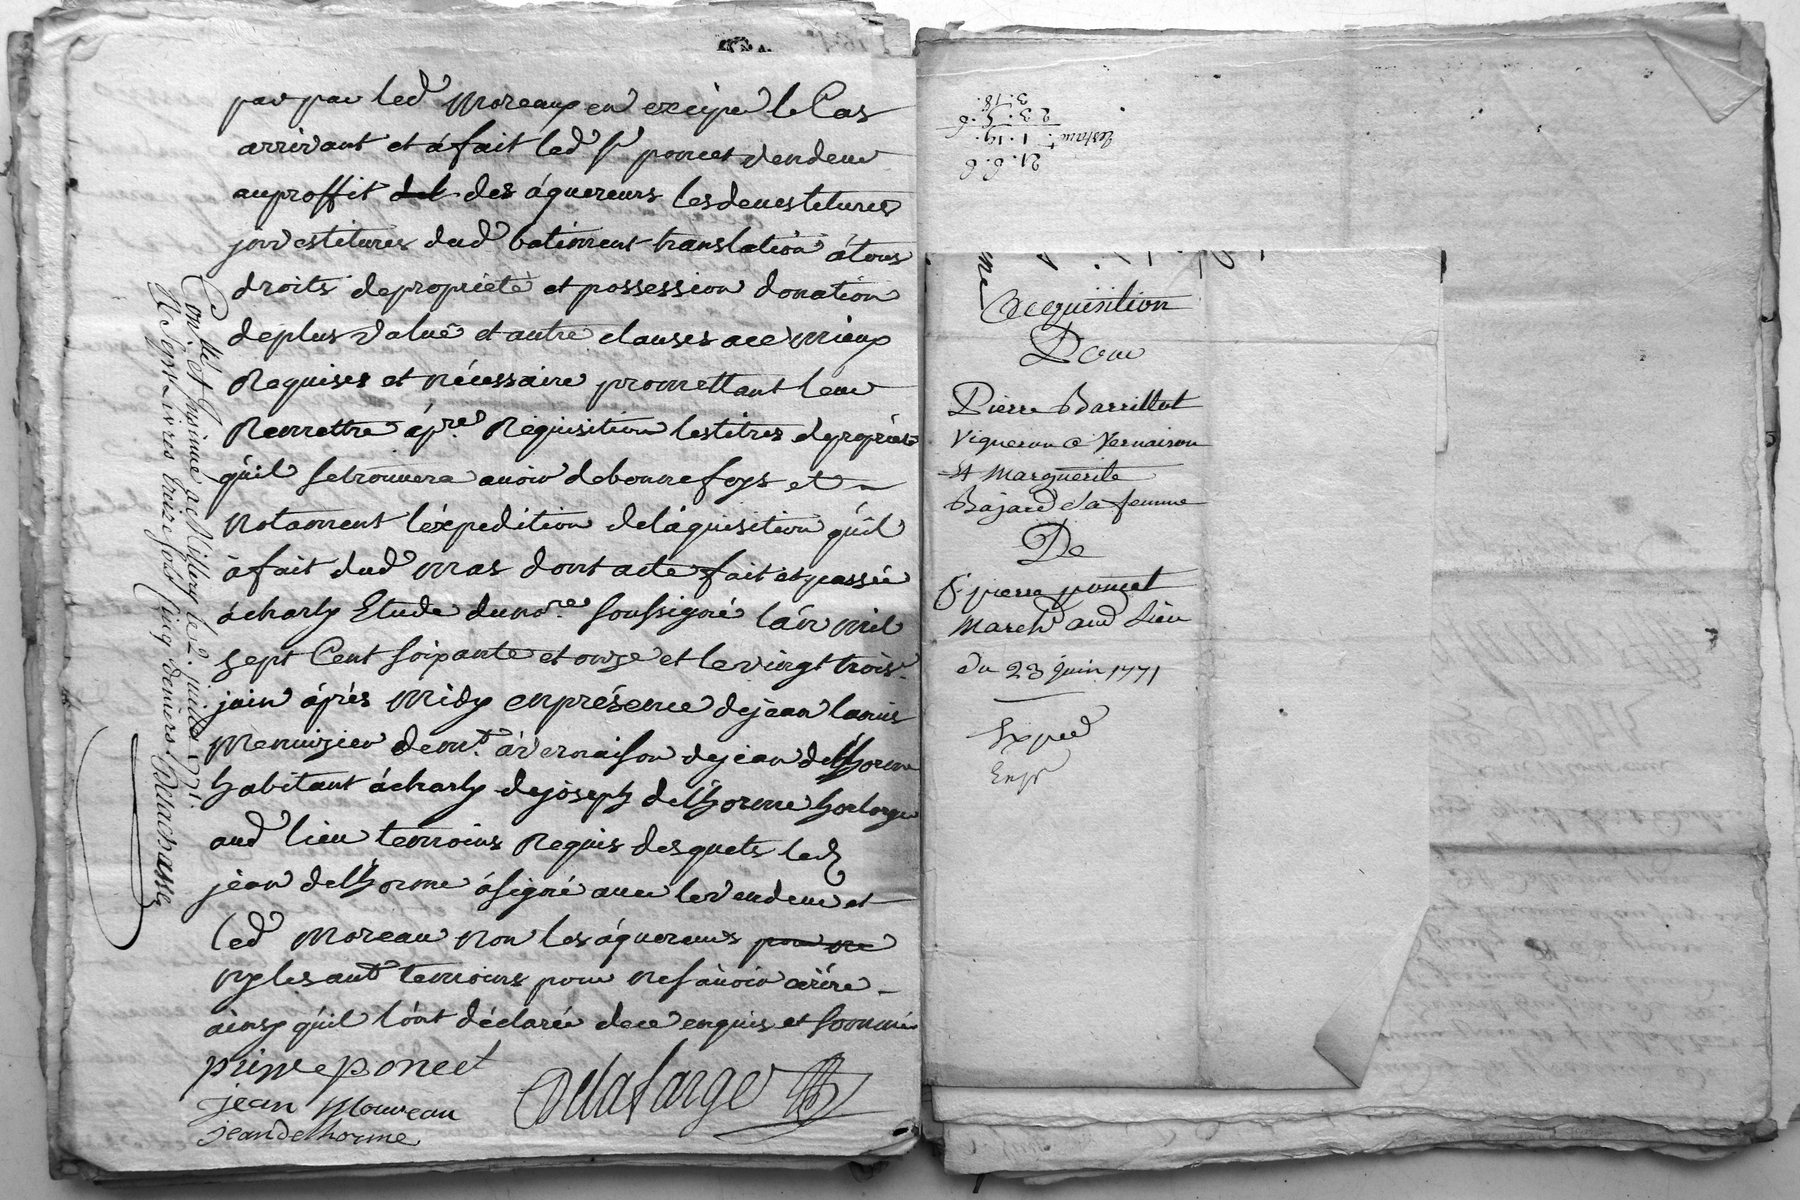 par led moreaux en exciper le Cas
arrivant et á fait led Sr poncet vendeur
au proffit des áquereurs les devestitures
jnvestitures dud batiment translation á tous
droits de proprieté et possession donation
de plus valué et autre clauses a ce mieux
Requises et nécessaire promettant leur
Remettre ápre Réquisition les titres de proprieté
qúil se trouvera avoir de bonne foys et
Notament léxpedition de láquisition qúil
á fait dud mas dont acte fait et passée
á charly Etude du nore soussigné lán mil
sept Cent soixante et onze et le vingt trois
juin áprés midy en présence de jean lanis
Menuizier demt á vernaison de jean delhorme
habitant á charly de jóseph delhorme horloger
aud lieu temoins Requis desquels led
jean delhorme á signé avec le vendeur et
led moreau non les áquereurs pour ne
ny les aut temoins pour ne sávoir ecrire
ainsy qúil lónt déclarée de ce enquis et sommés
pierre poncet
jean Moureau
jean delhorme
Delafarge
Conllé et jnsinué a Millery le 2. juillet 1771.
R. sept Livres treize sols cinq deniers Delachassé
21. 6. 6
restant 1. 19.
23. 5. 6
3. 18.
Acquisition
Pour
Pierre Barrillot
Vigneron a Vernaison
et Marguerite
Bajard sa femme
De
Sr pierre poncet
March aud Lieu
du 23 juin 1771
Exped
Enr